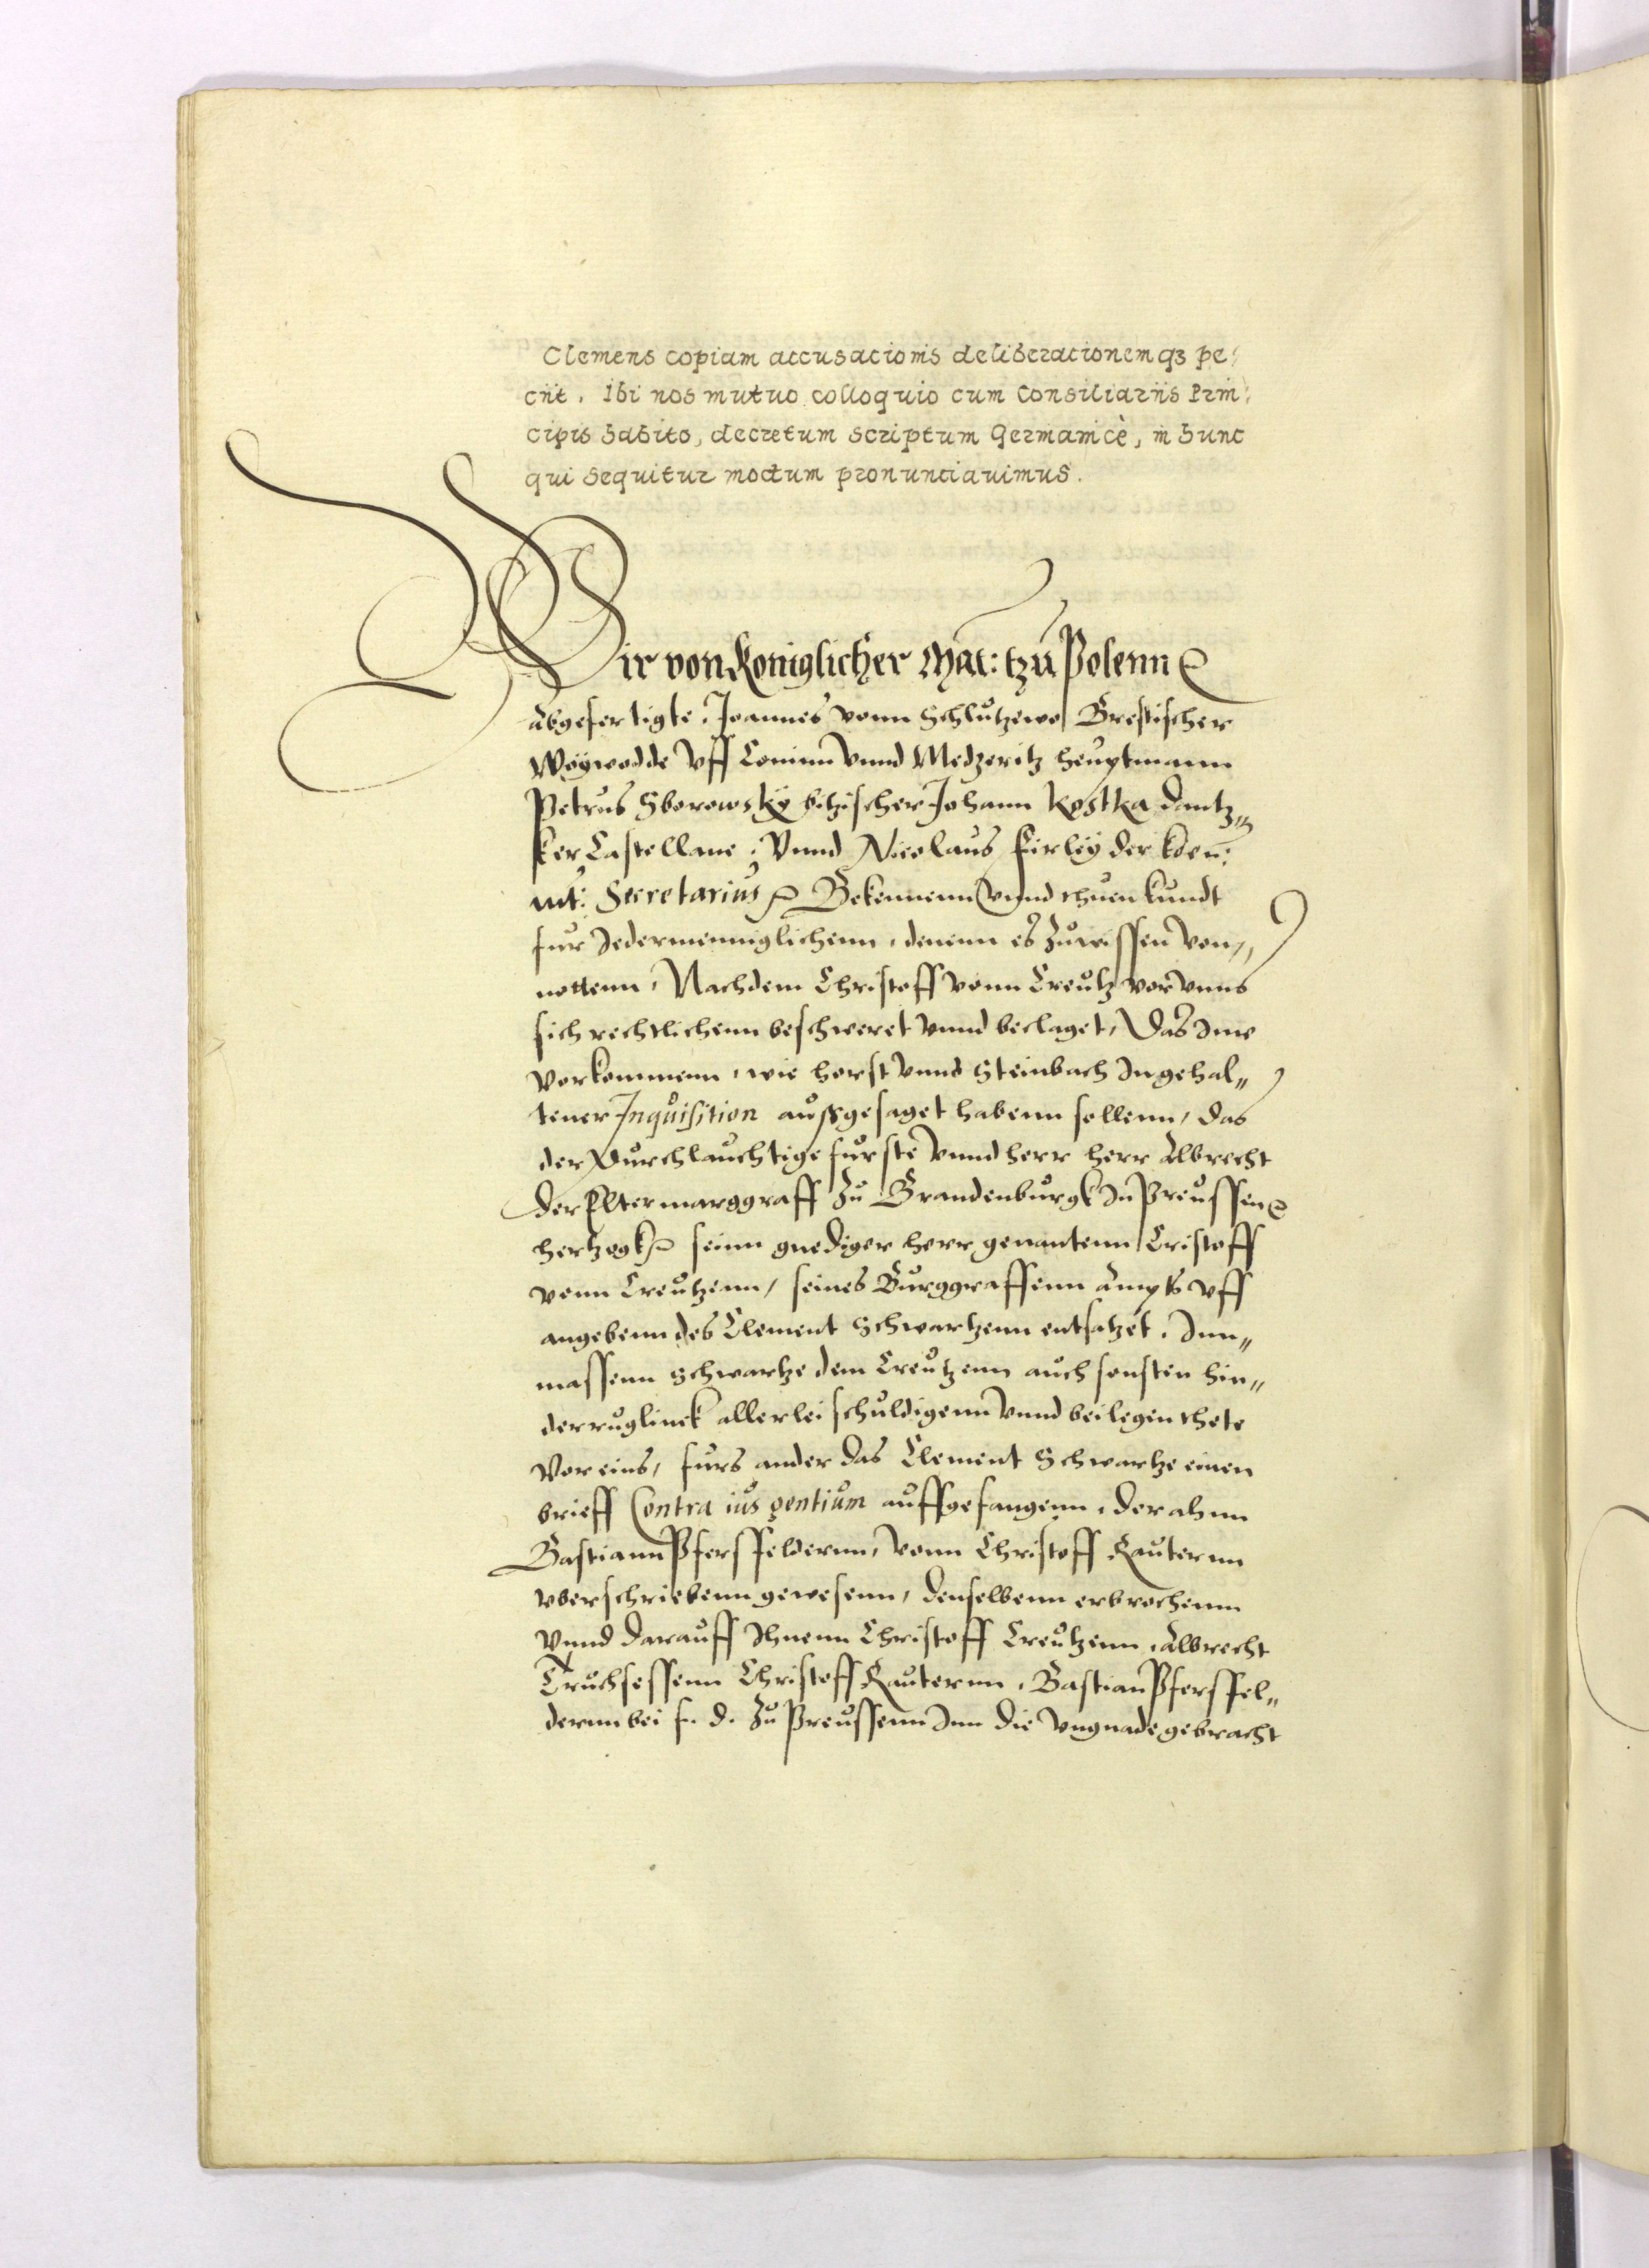 Clemens copiam accusacionis deliberacionemqз pe:
ciit. Ibi nos mutuo colloquio cum Consiliariis Prin:
cipis habito, decretum scriptum Germanicè, in hunc
qui sequitur modum pronunciauimus.
Wir von Koniglicher Mat: tzu Polenn
Abgefertigte, Joannes vonn Schlutzewo Brestischer
Woÿwodde vff Coninn vnnd Medzeritz heuptmann
Petrus Sborowskÿ bitzischer Johann Kostka dantz„
ker Castellane, Vnnd Nicolaus Firleÿ der koen:
mt: Secretarius Bekennenn vnnd thuen kundt
fur Jedermenniglichenn, denenn es zuwissen von„
nottenn, Nachdem Christoff vonn Creutz vor vnns
sich rechtlichenn beschweret vnnd beclaget, Das Ime
vorkommenn, wie horst vnnd Steinbach Jn gehal„
tener Inquisition außgesaget habenn sollenn, das
der Durchlauchtige furste vnnd herr herr Albrecht
der Elter marggraff zu Brandenburgk Jn Preussen
hertzogk seinn gnediger herr genantenn Cristoff
vonn Creutzenn, seines Burggraffenn Ampts vff
angebenn des Clement Schwartzenn entsatzet, Jnn„
massenn Schwartze dem Creutzenn auch sonsten hin„
derruglinck allerlei schuldigenn vnnd beilegen thete
Vor eins, furs ander das Clement Schwartze einen
brieff Contra ius gentium auffgefangenn, der ahnn
Bastiann Pfersfeldernn, vonn Christoff Rauternn
vberschriebenn gewesenn, denselbenn erbrochenn
Vnnd darauff Ihnenn Christoff Creutzenn, Albrecht
Truchsessenn Christoff Rauternn, Bastian Pfersfel„
dernn bei f. d. zu Preussenn Jnn die vngnade gebracht